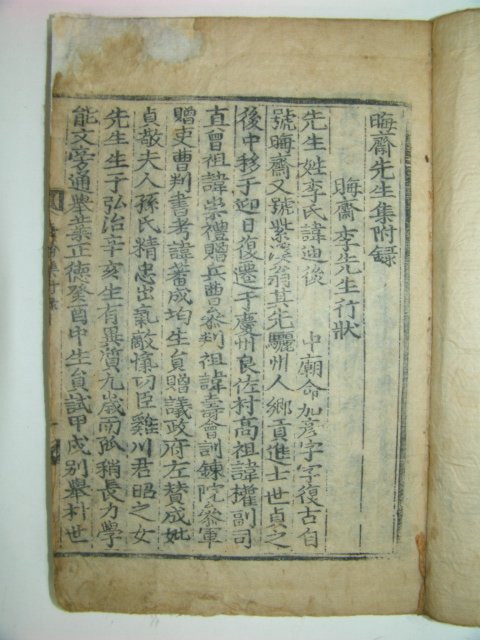 晦齋先生集附錄
晦齋李先生行狀
先生姓李氏諱迪後 中廟命加彦字字復古自
號晦齋又號紫溪翁其先驪州人鄕貢進士世貞之
後中移于迎日復遷于慶州良佐村高祖諱權副司
直曾祖諱崇禮贈兵曹參判祖諱壽會訓鍊院參軍
贈吏曹判書考諱蕃成均生員贈議政府左贊成妣
貞敬夫人孫氏精忠出氣敵愾功臣雞川君昭之女
先生生于弘治辛亥生有異質九歲而孤稍長力學
能文旁通衆藝正德癸酉中生員試甲戌別擧朴世